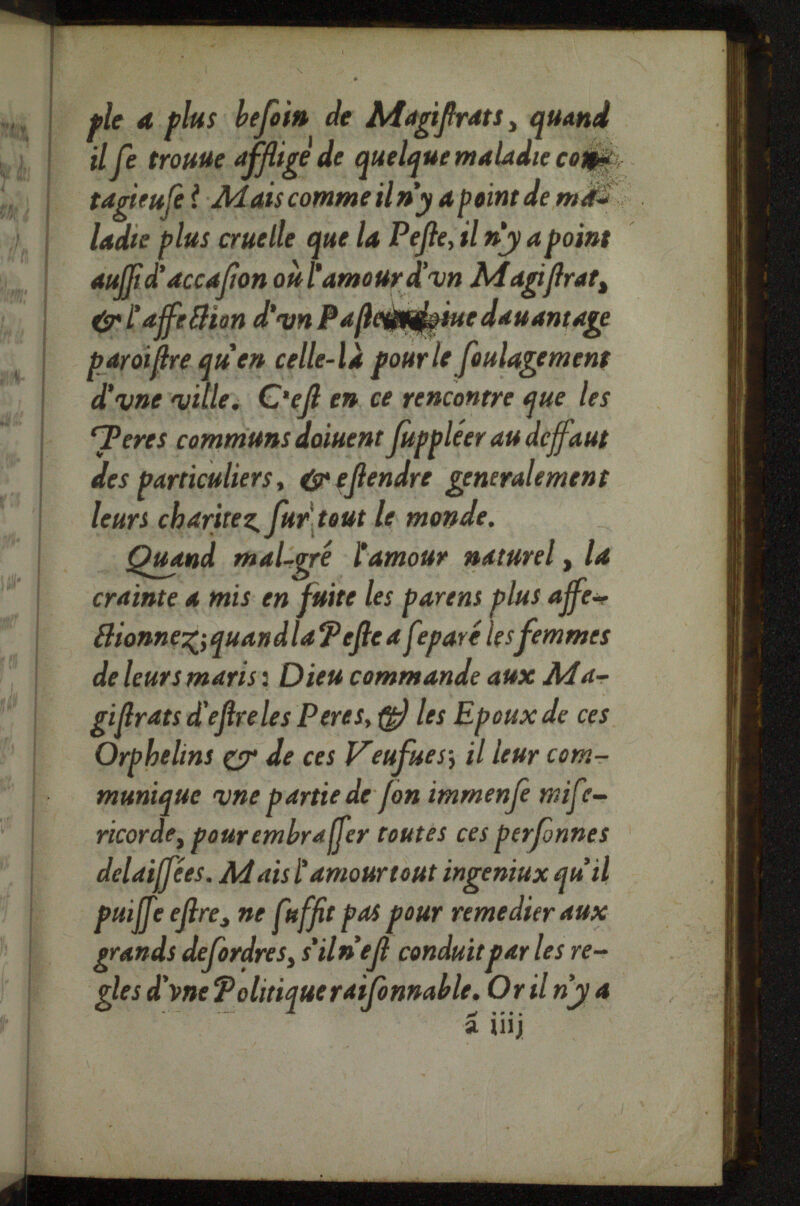 ple a plus beſoin de Magiſtrats, quand
il ſe trouue affligé de quelque maladie con-
tagieuſe ? Mais comme il n'y a point de ma-
ladie plus cruelle que la Peſte, il n'y a point
auſſi d'accaſion où l'amour d'vn Magiſtrat,
& l'affection d'vn dauantage
paroiſtre qu'en celle-là pour le ſoulagement
d'vne ville. C'eſt en ce rencontre que les
Peres communs doiuent ſuppléer au deffaut
des particuliers, & eſtendre generalement
leurs charitez ſur tout le monde.
Quand mal-gré l'amour naturel, la
crainte a mis en fuite les parens plus affe-
ctionnez; quand la Peſte a ſeparé les femmes
de leurs maris: Dieu commande aux Ma-
giſtrats d'eſtre les Peres, & les Epoux de ces
Orphelins & de ces Veufues; il leur com-
munique vne partie de ſon immenſe miſe-
ricorde, pour embraſſer toutes ces perſonnes
delaiſſées. Mais l'amour tout ingeniux qu'il
puiſſe eſtre, ne ſuffit pas pour remedier aux
grands deſordres, s'il n'eſt conduit par les re-
gles d'vne Politique raiſonnable. Or il n'y a
ã iiij